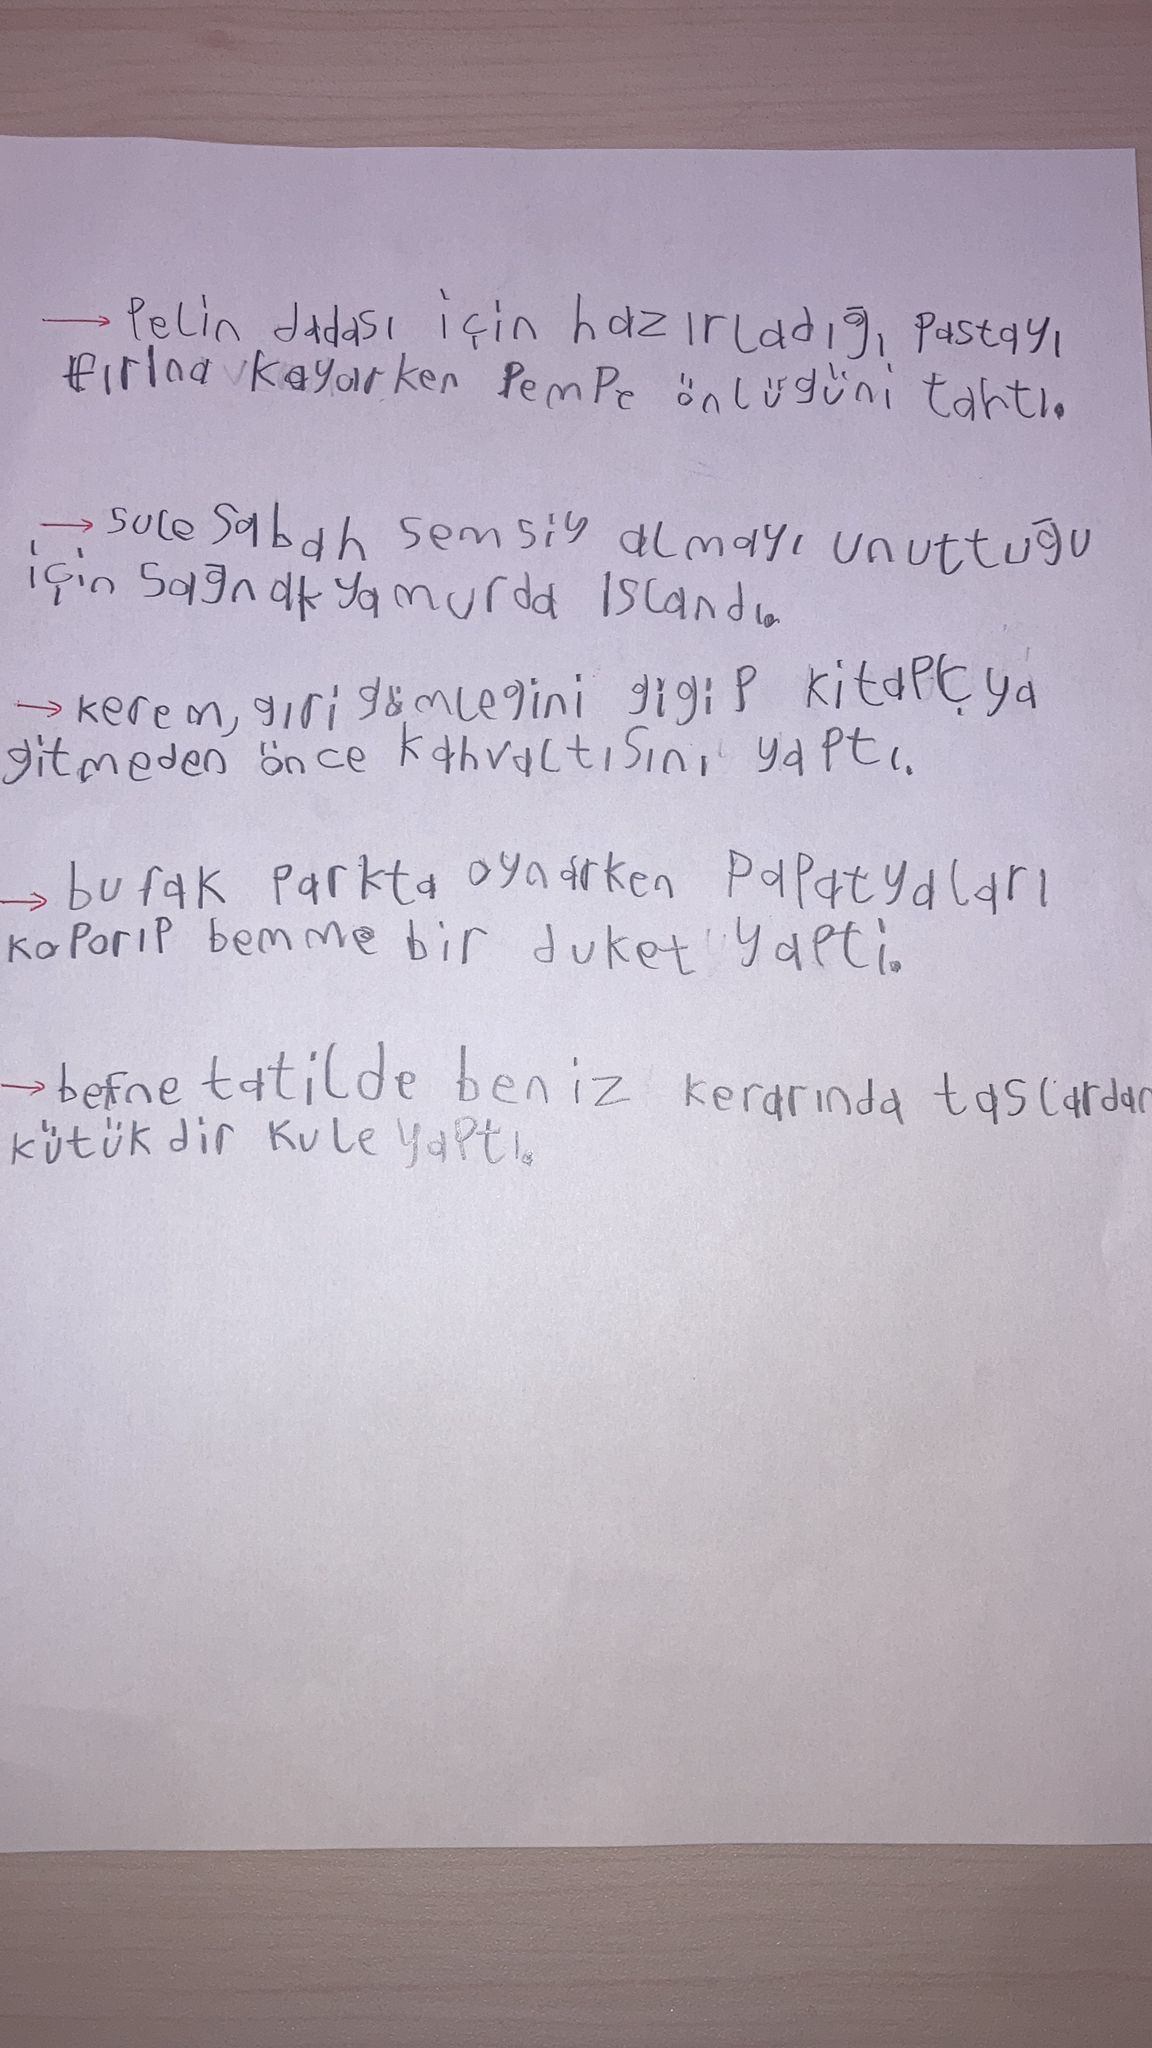 → Pelin dadası için hazırladığı Pastayı
fırlna kayarken Pempe önlügüni tahtı.
→ suce sabah semsiy almayı unuttuğu
için sağnak yamurda ıslandı.
→ kerem, gıri gömlegini gigip kitapçya
gitmeden önce kahvaltısını yaptı.
→ burak parkta oynarken papatyaları
koporıp bemme bir duket yapti.
→ befne tatilde beniz kerarında taslardan
kütük dir kule yaptı.